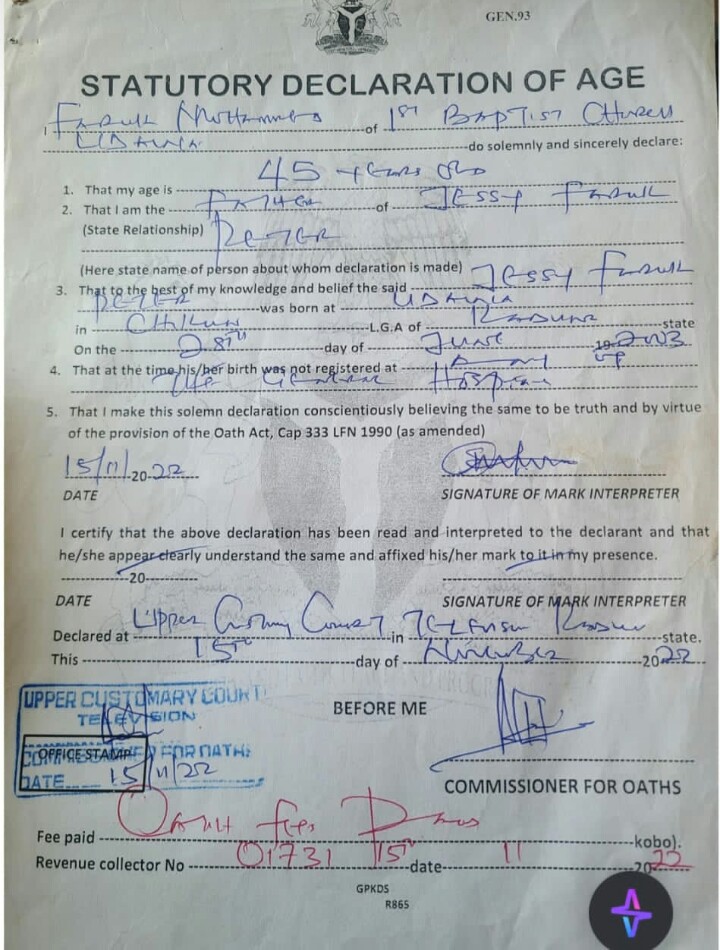 GEN.93
STATUTORY DECLARATION OF AGE
I Faruk Mohammed of 1st Baptist Church
Udawa do solemnly and sincerely declare:
1. That my age is 45 years old
2. That I am the Father of Jessy Faruk
(State Relationship) Peter
(Here state name of person about whom declaration is made)
3. That to the best of my knowledge and belief the said Jessy Faruk
Peter was born at Udawa
in Chikun L.G.A of Kaduna state
On the 28th day of June 19 2003
4. That at the time his/her birth was not registered at
Hospital
5. That I make this solemn declaration conscientiously believing the same to be truth and by virtue
of the provision of the Oath Act, Cap 333 LFN 1990 (as amended)
15/11/ 20 22
DATE SIGNATURE OF MARK INTERPRETER
I certify that the above declaration has been read and interpreted to the declarant and that
he/she appear clearly understand the same and affixed his/her mark to it in my presence.
20
DATE SIGNATURE OF MARK INTERPRETER
Declared at Upper Customary Court Television Kaduna in state.
This 15th day of November 2022
UPPER CUSTOMARY COURT
TELEVISION
BEFORE ME
COMMISSIONER FOR OATHS
OFFICE STAMP
DATE 15/11/22
COMMISSIONER FOR OATHS
Oath fees
Fee paid kobo).
Revenue collector No 01731 15th date 11 2022
GPKDS
R865